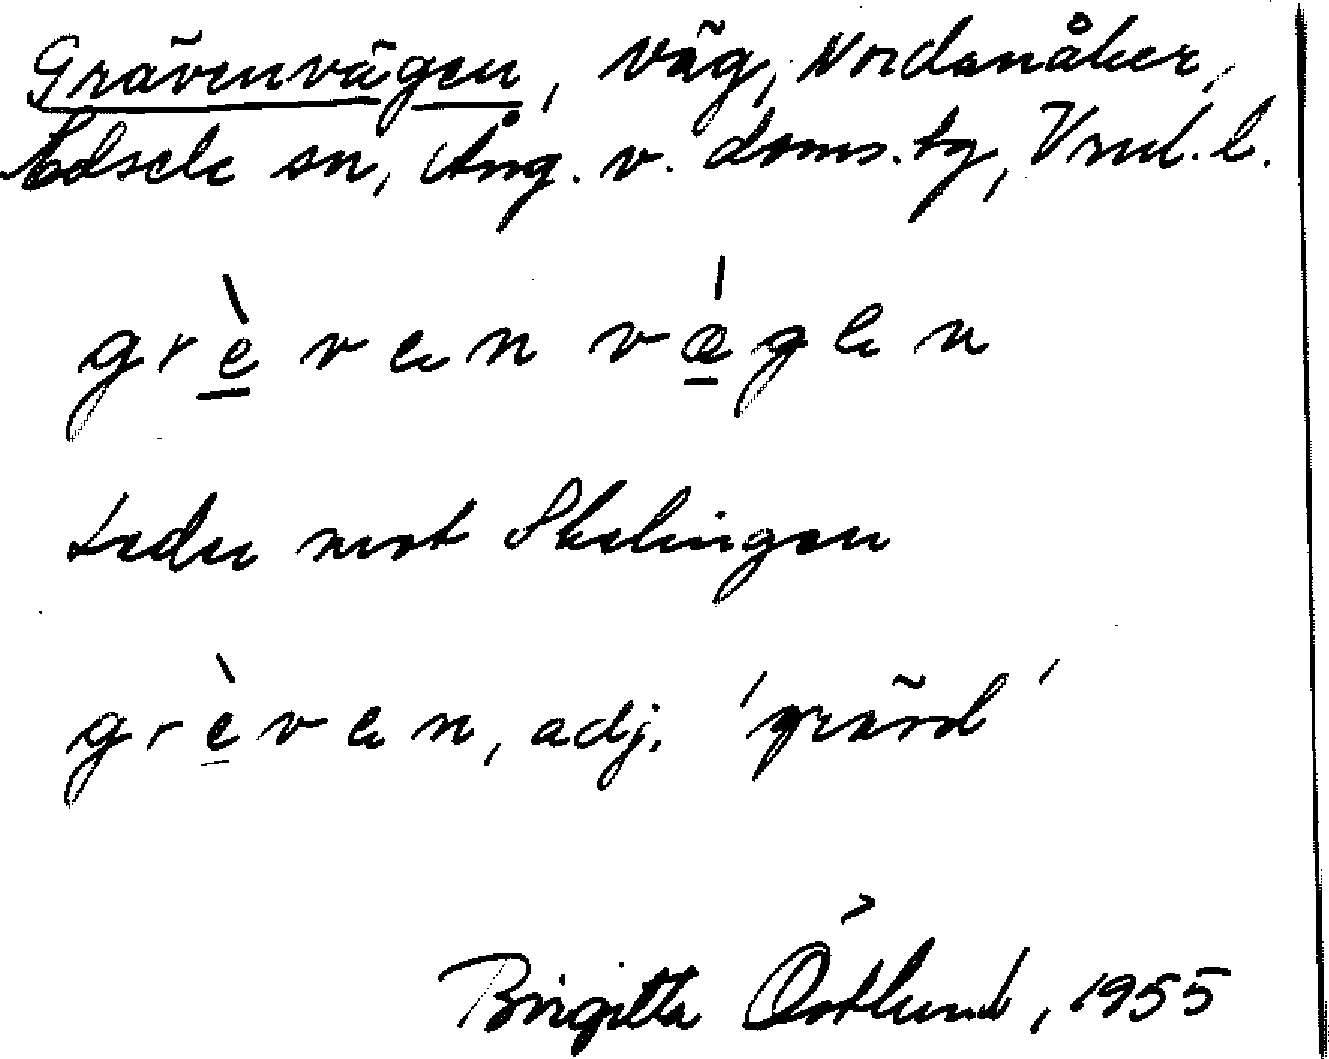 Grävenvägen, väg, Nordanåker,
Edsele sn, Ång. v. doms.tg, Vnl. l.
grè̲ven vǽ̲gen
Leder mot Skalingen
grè̲ven, adj. 'grävd'
Birgitta Östlund, 1955